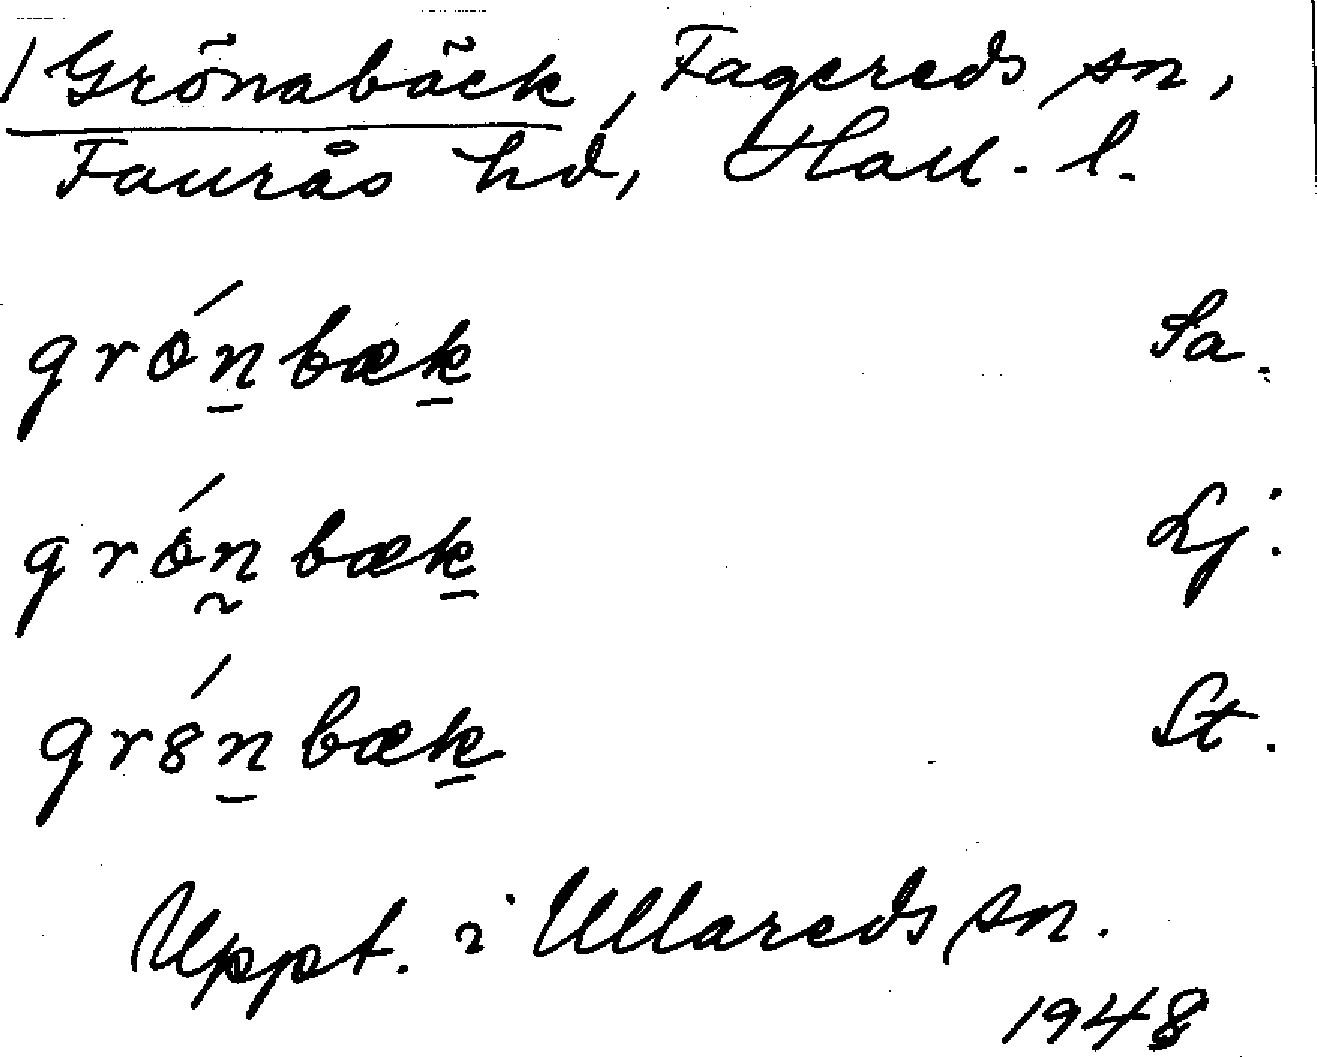 / Grönabäck, Fagereds sn,
Faurås hd, Hall. l.
grǿn̠bæk̠ Sa.
grǿn̰bæk̠ Lj.
gr8́n̠bæk̠ St.
Uppt. i Ullareds sn.
1948